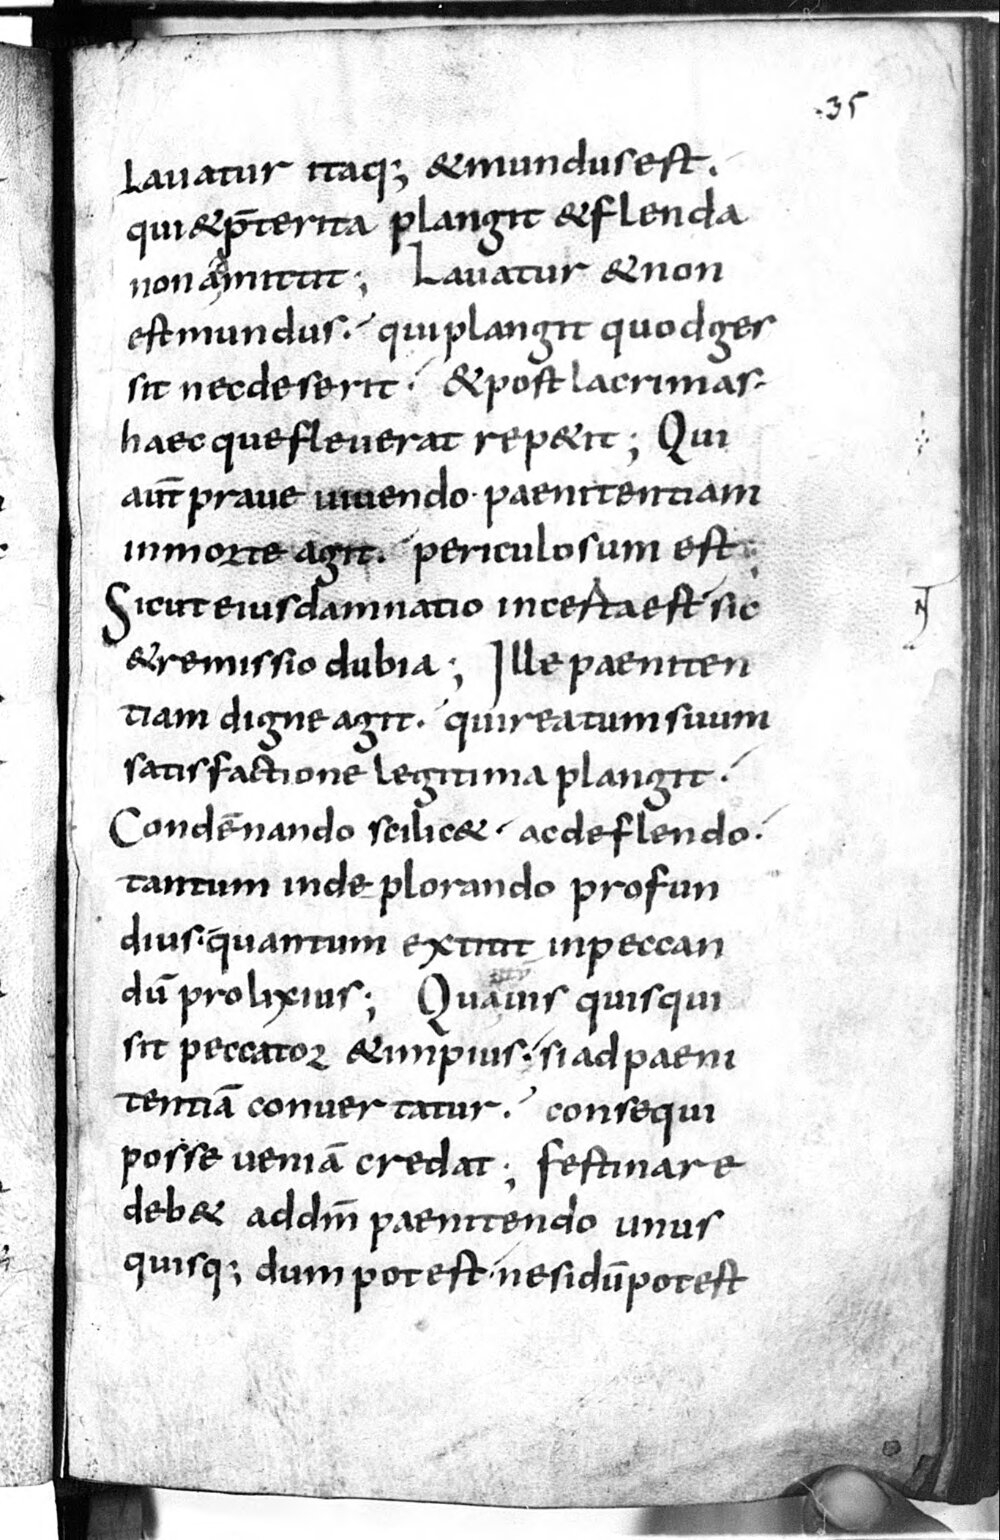 35
Lauatur itaq; & mundus est.
qui & p̄terita plangit & flenda
non amittit; Lauatur & non
est mundus. qui plangit quod ges
sit nec deserit. & post lacrimas
haec que fleuerat rep&it; Qui
aut̄ praue uiuendo. paenitentiam
in morte agit. periculosum est;
Sicut eius damnatio incerta est sic
& remissio dubia; Ille paeniten
tiam digne agit. qui reatum suum
satisfactione legitima plangit.
Condēnando scilic&. ac deflendo.
tantum inde plorando profun
dius. quantum extitit in peccan
dū prolixius; Quāuis quis qui
sit peccator & impius. si ad paeni
tentiā conuertatur. consequi
posse ueniā credat; festinare
deb& ad dm̄ paenitendo unus
quisq; dum potest. ne si dū potest